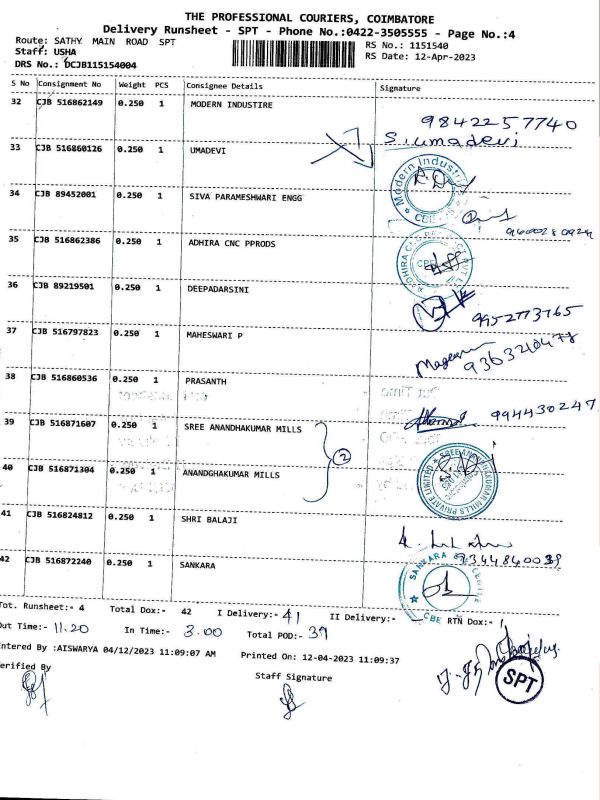 THE PROFESSIONAL COURIERS, COIMBATORE
Delivery Runsheet - SPT - Phone No.:0422-3505555 - Page No.:4
Route: SATHY MAIN ROAD SPT
RS No.: 1151540
Staff: USHA
RS Date: 12-Apr-2023
DRS No.: DCJB115154004
S No Consignment No Weight PCS Consignee Details Signature
32 CJB 516862149 0.250 1 MODERN INDUSTIRE
9842257740
S. umadevi
33 CJB 516860126 0.250 1 UMADEVI
Modern Industries CBE
34 CJB 89452001 0.250 1 SIVA PARAMESHWARI ENGG
35 CJB 516862386 0.250 1 ADHIRA CNC PPRODS
ADHIRA CNC CBE
36 CJB 89219501 0.250 1 DEEPADARSINI
9952773765
37 CJB 516797823 0.250 1 MAHESWARI P
38 CJB 516860536 0.250 1 PRASANTH
Out Time
39 CJB 516871607 0.250 1 SREE ANANDHAKUMAR MILLS
994430247
2
SREE ANANDHAKUMAR MILLS PRIVATE LIMITED
40 CJB 516871304 0.250 1 ANANDGHAKUMAR MILLS
41 CJB 516824812 0.250 1 SHRI BALAJI
42 CJB 516872240 0.250 1 SANKARA
SANKARA CBE
Tot. Runsheet:- 4 Total Dox:- 42 I Delivery:- 41 II Delivery:- RTN Dox:- 1
Out Time:- 11.20 In Time:- 3.00 Total POD:- 39
Entered By :AISWARYA 04/12/2023 11:09:07 AM Printed On: 12-04-2023 11:09:37
Verified By Staff Signature
SPT